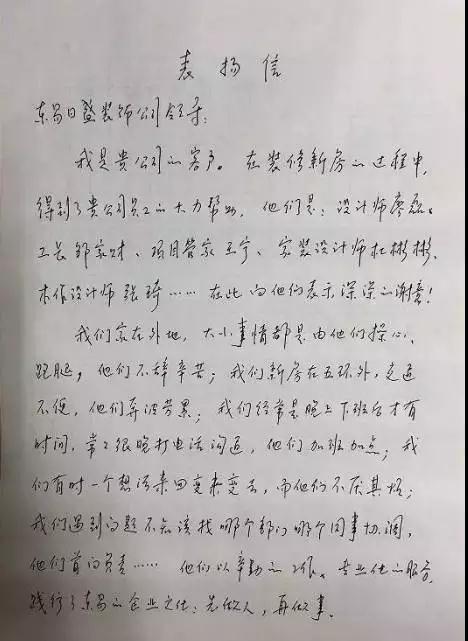 表扬信
东易日盛装饰公司领导:
我是贵公司的客户。在装修新房的过程中,
得到了贵公司员工的大力帮助,他们是:设计师廖磊、
工长邹家才、项目管家王宁、家装设计师杜彬彬、
木作设计师张琦……在此向他们表示深深的谢意!
我们家在外地,大小事情都是由他们操心、
跑腿,他们不辞辛苦;我们新房在五环外,交通
不便,他们奔波劳累;我们经常是晚上下班后才有
时间,常常很晚打电话沟通,他们加班加点;我
们有时一个想法来回变来变去,而他们不厌其烦;
我们遇到问题不知该找哪个部门哪个同事协调,
他们首问负责……他们以辛勤的工作、专业化的服务
践行了东易的企业文化:先做人,再做事。